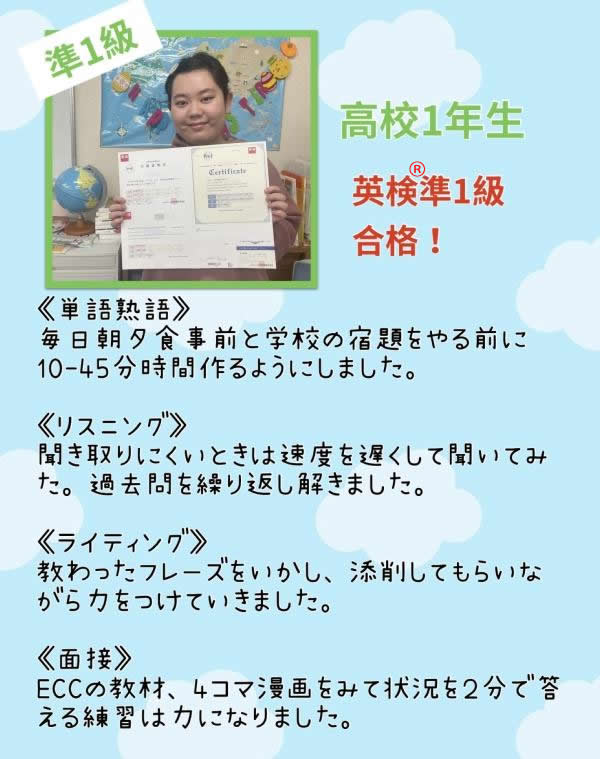 準1級
Certificate
高校1年生
英検®準1級
合格！
《単語熟語》
毎日朝夕食事前と学校の宿題をやる前に
10-45分時間作るようにしました。
《リスニング》
聞き取りにくいときは速度を遅くして聞いてみ
た。過去問を繰り返し解きました。
《ライティング》
教わったフレーズをいかし、添削してもらいな
がら力をつけていきました。
《面接》
ECCの教材、4コマ漫画をみて状況を2分で答
える練習は力になりました。